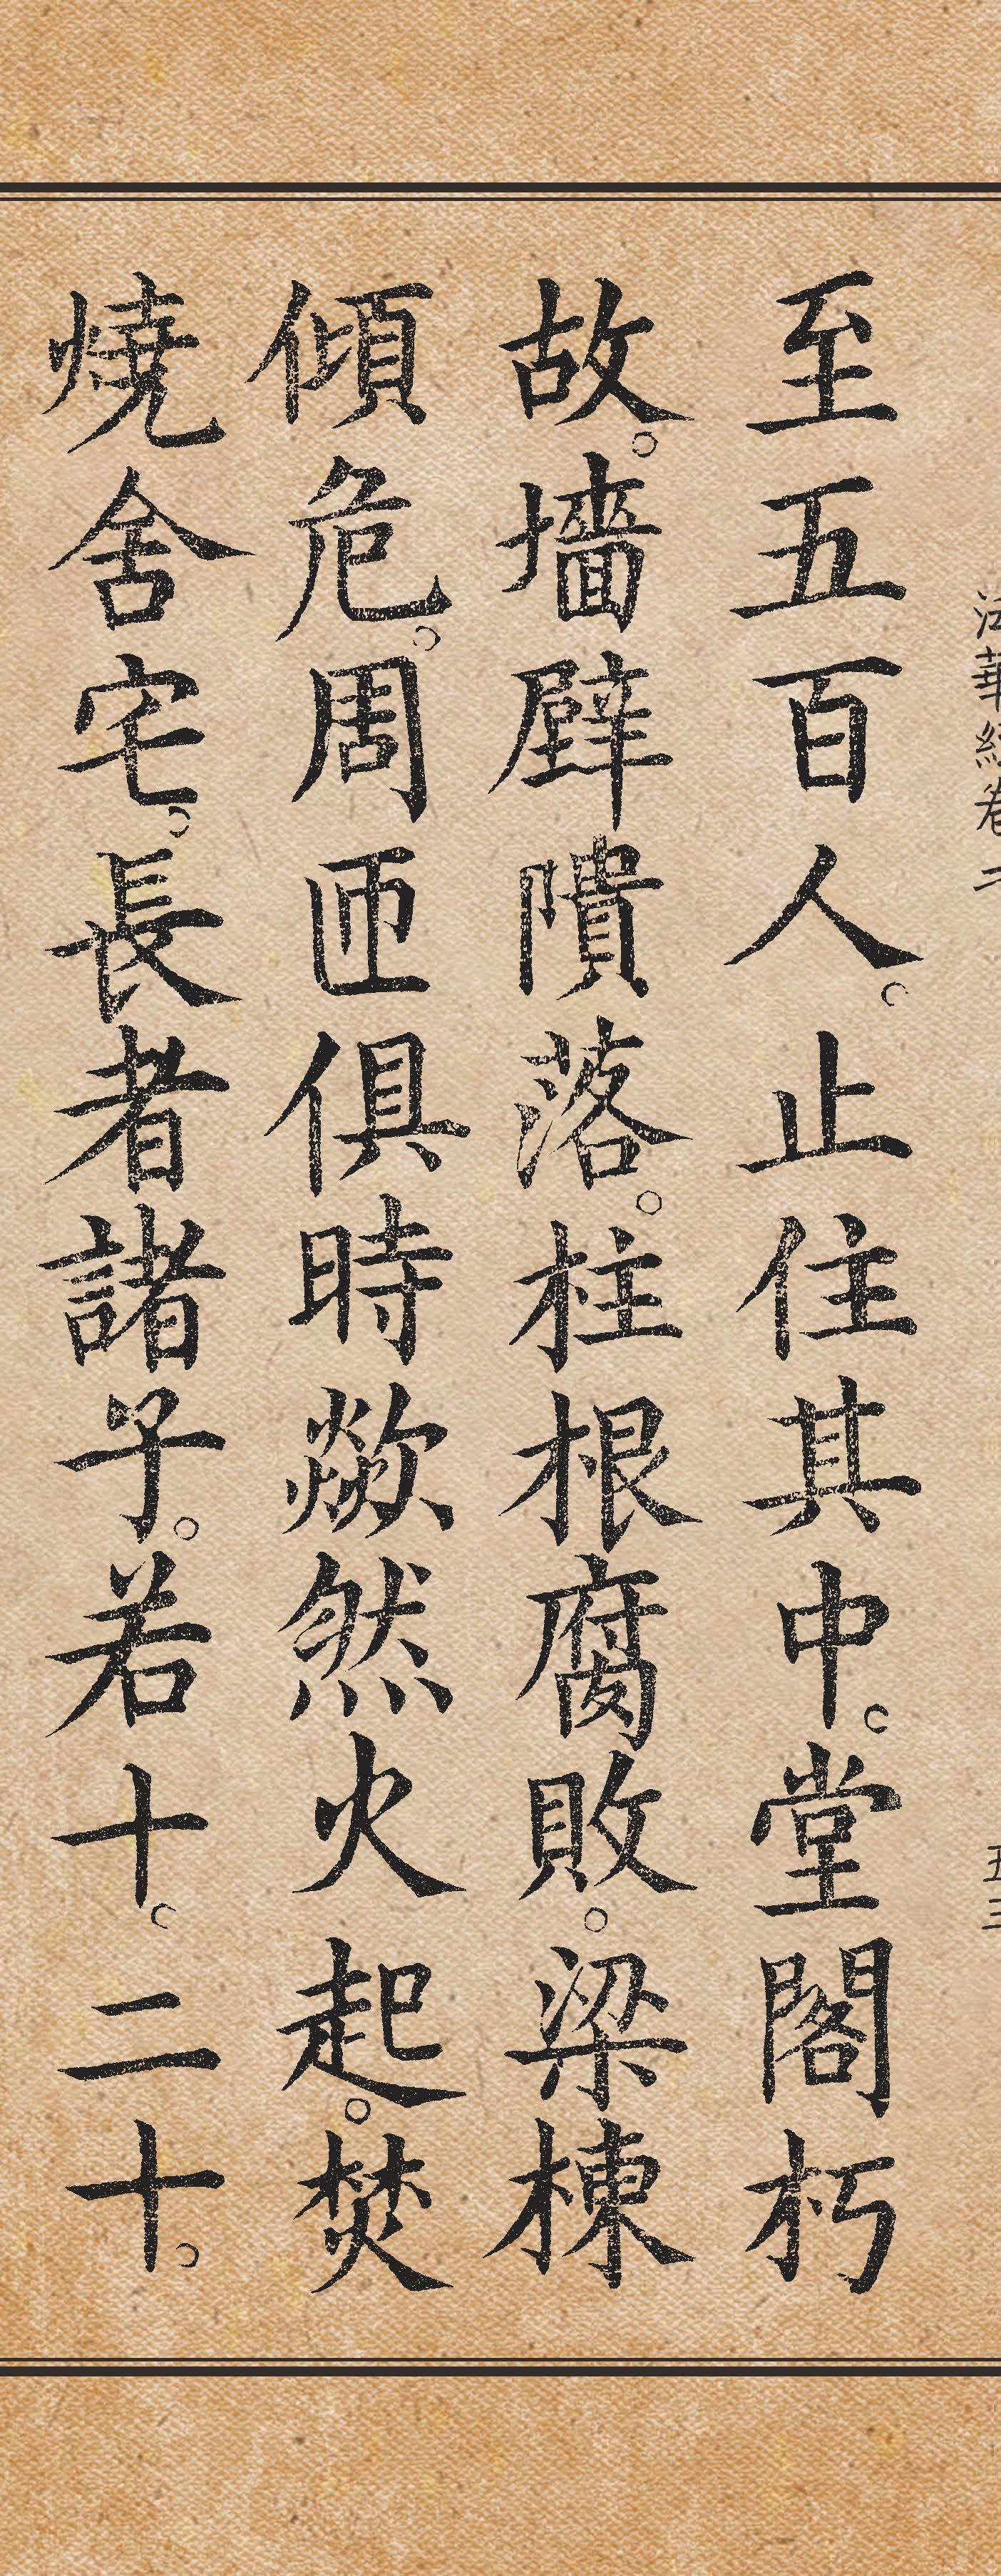 法華經卷二 五三
至五百人。止住其中。堂閣朽
故。墻壁隤落。柱根腐敗。梁棟
傾危。周匝俱時歘然火起。焚
燒舍宅。長者諸子。若十。二十。